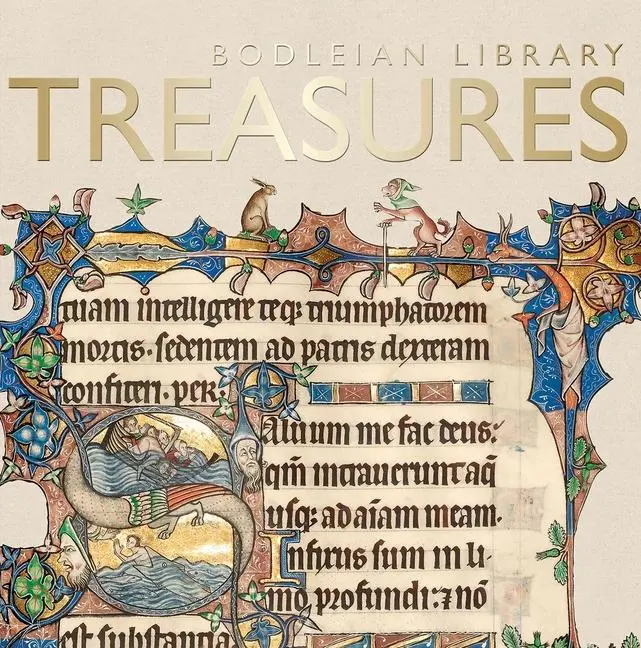 BODLEIAN LIBRARY
TREASURES
tuam intelligere teq; triumphatorem
mortis. sedentem ad patris dexteram
confiteri. per.
Aluum me fac deus:
qm̄ intrauerunt aq̄
usq; ad aīam meam.
Infixus sum in li-
mo profundi: ⁊ nō
est substantia